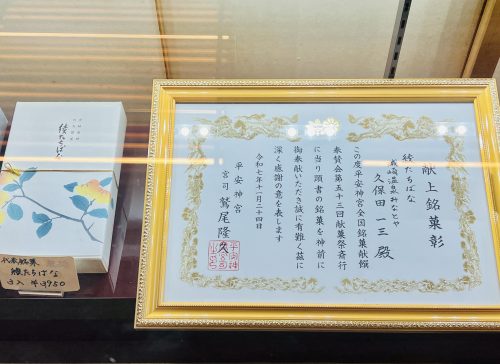 綾たちばな
代表銘菓
綾たちばな
献上銘菓彰
綾たちばな
城崎温泉みなとや
久保田一三殿
この度平安神宮全国銘菓献饌
奉賛会第五十三回献菓祭斎行
に当り頭書の銘菓を神前に
御奉献いただき誠に有難く茲に
深く感謝の意を表します
令和七年十一月二十四日
平安神宮
宮司 鷲尾隆久